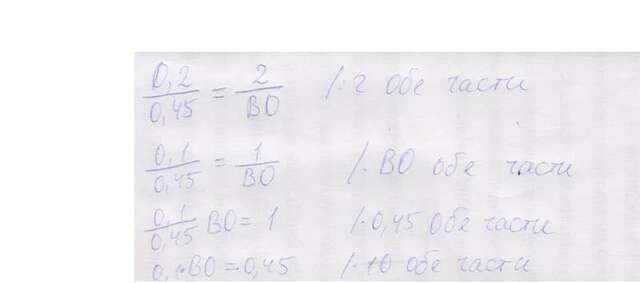 0,2/0,45 = 2/ВО /:2 обе части
0,1/0,45 = 1/ВО /·ВО обе части
0,1/0,45 ВО = 1 /·0,45 обе части
0,1·ВО = 0,45 /·10 обе части